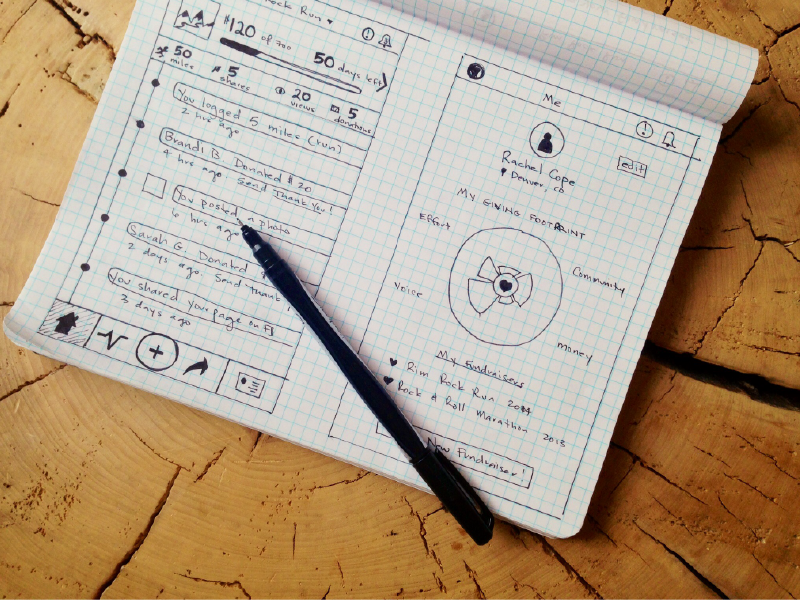 Rock Run
$120 of 700
50 days left
50 miles
5 shares
20 views
5 donations
You logged 5 miles (run)
2 hrs ago
Brandi B. Donated $20
4 hrs ago. Send Thank You!
You posted a photo
6 hrs ago
Sarah G. Donated
2 days ago. Send Thank
You shared your page on f
3 days ago
Me
Rachel Cope
Denver, CO
edit
MY GIVING FOOTPRINT
Effort
Community
Voice
money
My Fundraisers
Rim Rock Run 2014
Rock & Roll Marathon 2013
New Fundraiser!